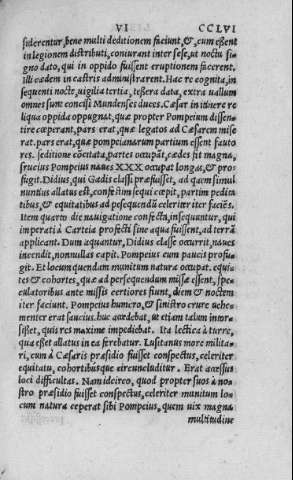 VI CCLVI
siderentur, bene multi deditionem faciunt, &, cum essent
in legionem distributi, coniurant inter sese, ut noctu si⸗
gno dato, qui in oppido fuissent eruptionem facerent,
illi cædem in castris administrarent. Hac re cognita, in⸗
sequenti nocte, uigilia tertia, tessera data, extra uallum
omnes sunt concisi Mundenses duces. Cæsar in itinere re
liqua oppida oppugnat, quæ propter Pompeium dissen⸗
tire cœperant, pars erat, quæ legatos ad Cæsarem mise
rat. pars erat, quæ pompeianarum partium essent fauto
res. seditione cōcitata, partes occupāt, cædes fit magna,
frucius Pompeius naues XXX occupat longas, & pro⸗
fugit. Didius, qui Gadis classi præfuisset, ad quem simul
nuntius allatus est, confestim sequi cœpit, partim pedita
tibus, & equitatibus ad persequendū celeriter iter faciēs.
Item quarto die nauigatione confecta, insequuntur, qui
imperati à Carteia profecti sine aqua fuissent, ad terrā
applicant. Dum aquantur, Didius classe occurrit, naues
incendit, nonnullas capit. Pompeius cum paucis profu⸗
git. Et locum quendam munitum natura occupat. equi⸗
tes & cohortes, quæ ad persequendum missæ essent, spe⸗
culatoribus ante missis certiores fiunt, diem & noctem
iter faciunt. Pompeius humero, & sinistro crure uehe⸗
menter erat saucius. huc accedebat, ut etiam talum intor⸗
sisset, quis res maxime impediebat. Ita lectica à turre,
qua esset allatus in ea ferebatur. Lusitanus more milita⸗
ri, cum à Cæsaris præsidio fuisset conspectus, celeriter
equitatu, cohortibúsque circuncluditur. Erat accessus
loci difficultas. Nam idcirco, quod propter suos à no⸗
stro præsidio fuisset conspectus, celeriter munitum lo⸗
cum natura ceperat sibi Pompeius, quem uix magna
multitudine